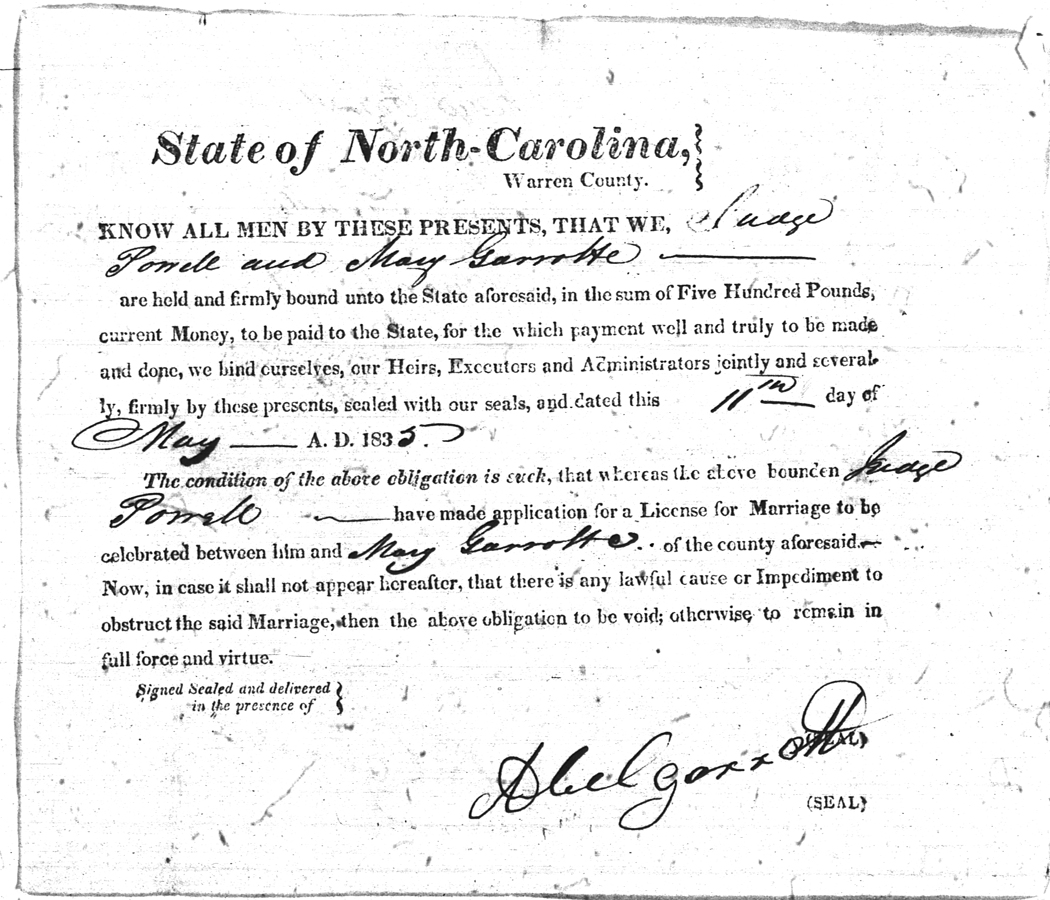 State of North-Carolina,
Warren County.
KNOW ALL MEN BY THESE PRESENTS, THAT WE, Judge
Powell and Mary Garrotte
are held and firmly bound unto the State aforesaid, in the sum of Five Hundred Pounds,
current Money, to be paid to the State, for the which payment well and truly to be made
and done, we bind ourselves, our Heirs, Executors and Administrators jointly and several-
ly, firmly by these presents, sealed with our seals, and dated this 11th day of
May A. D. 1835.
The condition of the above obligation is such, that whereas the above bounden Judge
Powell have made application for a License for Marriage to be
celebrated between him and Mary Garrotte .. of the county aforesaid.
Now, in case it shall not appear hereafter, that there is any lawful cause or Impediment to
obstruct the said Marriage, then the above obligation to be void; otherwise to remain in
full force and virtue.
Signed Sealed and delivered
in the presence of
Abel garrott (SEAL)
(SEAL)